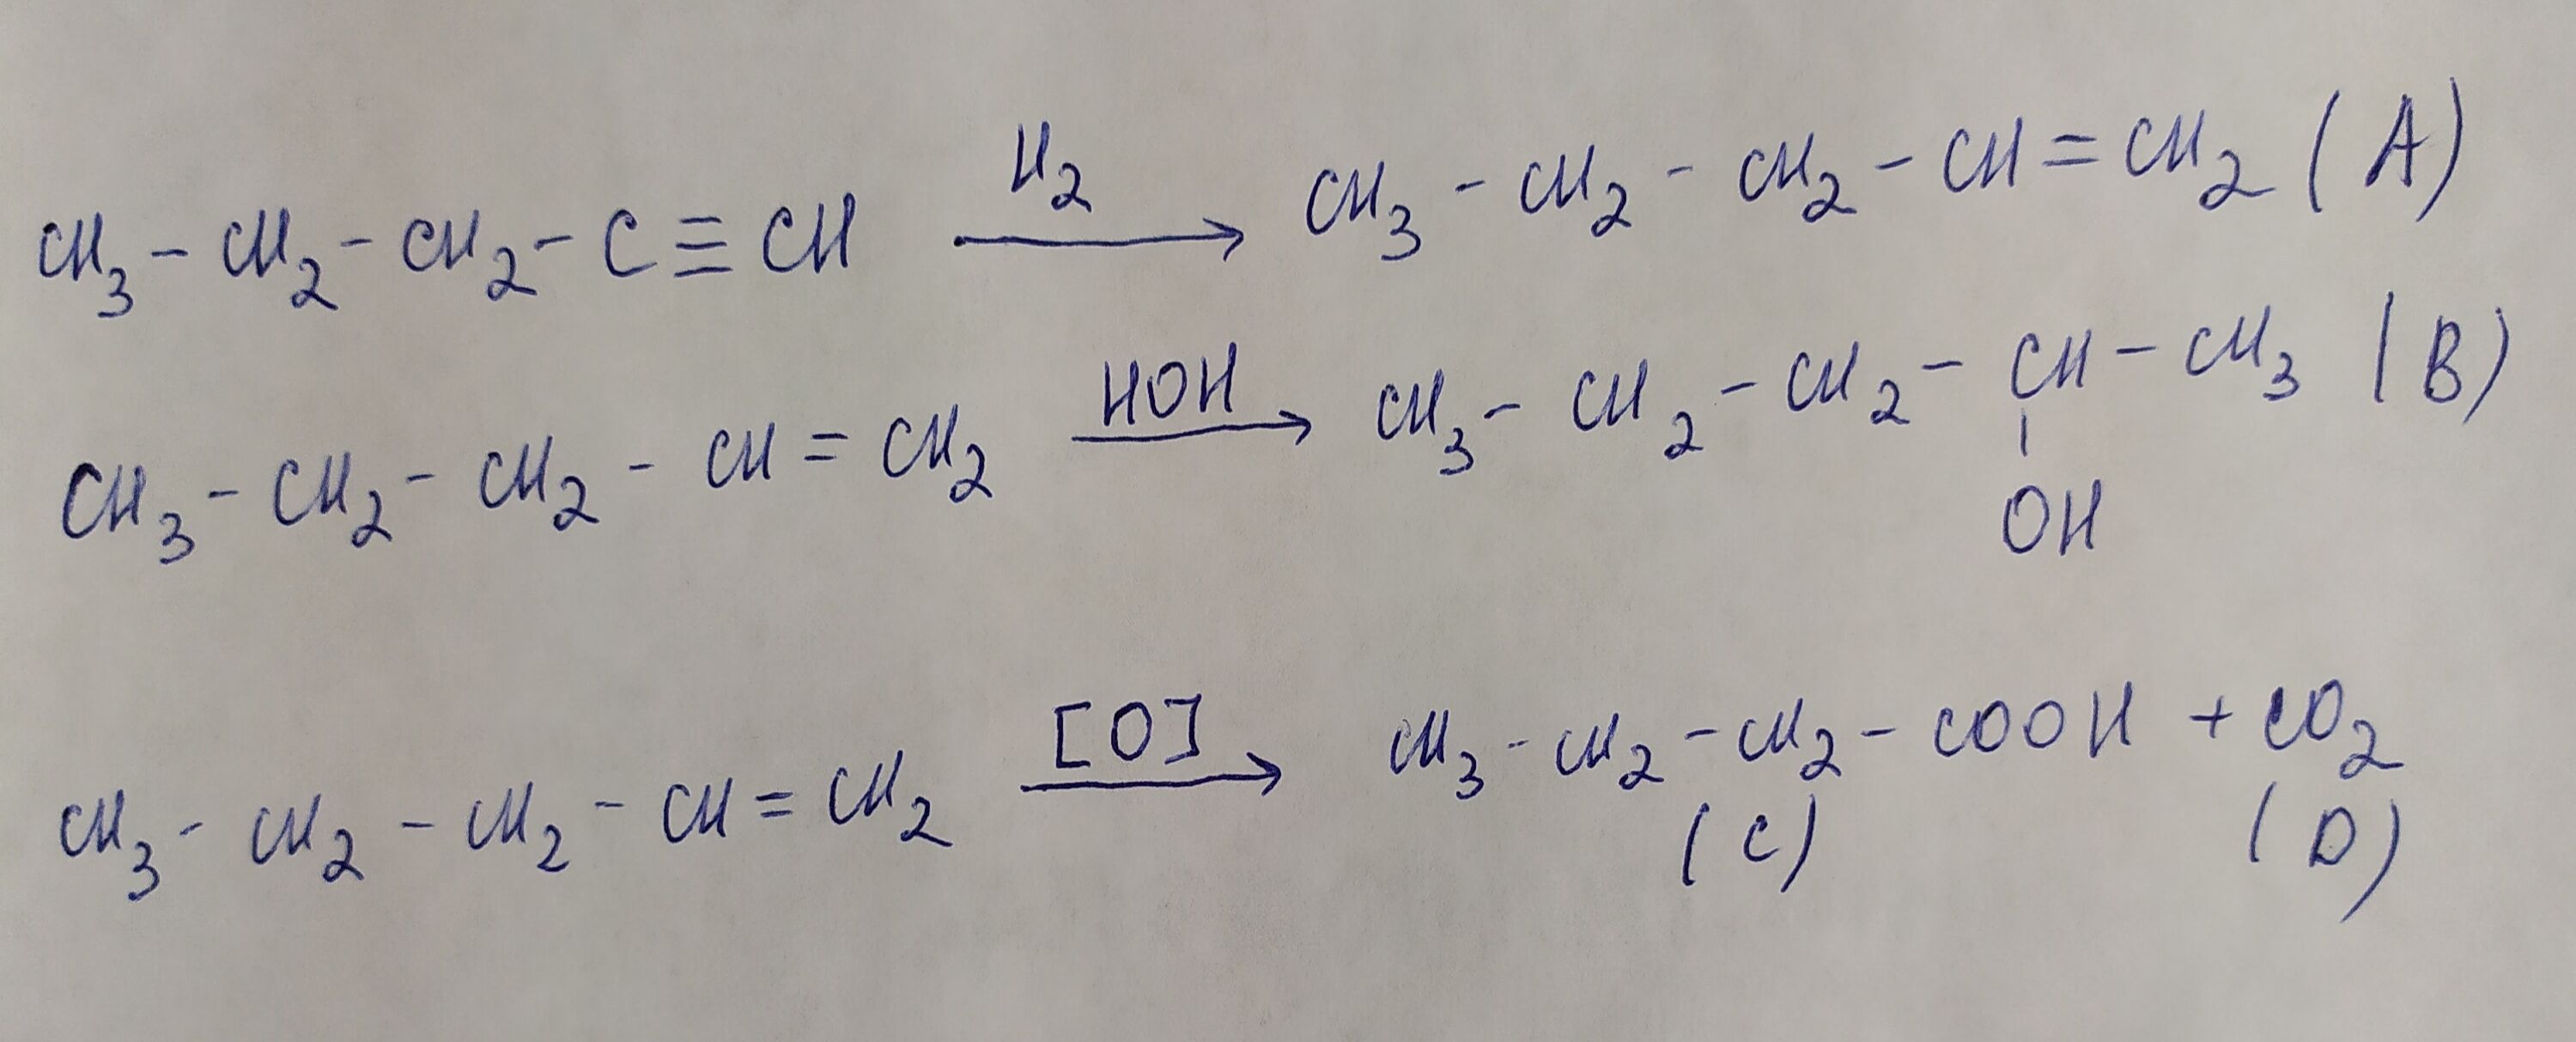 CH₃ - CH₂ - CH₂ - C ≡ CH →(H₂) CH₃ - CH₂ - CH₂ - CH = CH₂ (A)
CH₃ - CH₂ - CH₂ - CH = CH₂ →(HOH) CH₃ - CH₂ - CH₂ - CH - CH₃ (B)
|
OH
CH₃ - CH₂ - CH₂ - CH = CH₂ →([O]) CH₃ - CH₂ - CH₂ - COOH + CO₂
(C) (D)